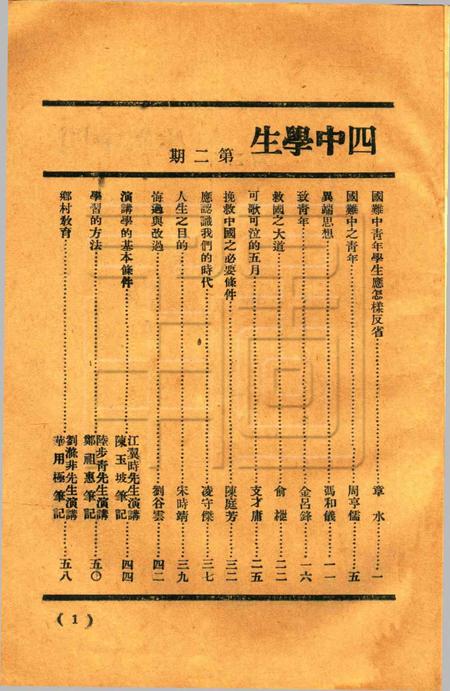 四中學生
第二期
國難中青年學生應怎樣反省………章水…一
國難中之青年………周亨儒…五
異端思想………馮和儀…一一
致青年………金呂鋒…一六
救國之大道………俞櫳…二二
可歌可泣的五月………支才庸…二五
挽救中國之必要條件………陳庭芳…三二
應認識我們的時代………凌守傑…三七
人生之目的………宋時靖…三九
悔過與改過………劉谷雲…四二
演講學的基本條件………江翼時先生演講 陳玉坡筆記…四四
學習的方法………陸步青先生演講 鄭祖惠筆記…五〇
鄉村教育………劉滌非先生演講 華用極筆記…五八
(1)